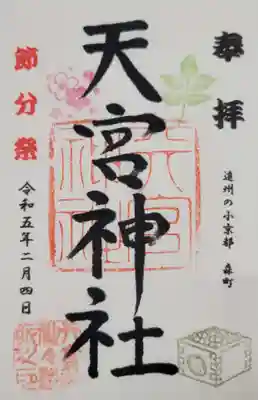 奉拝
遠州の小京都 森町
天宮神社
節分祭
令和五年二月四日